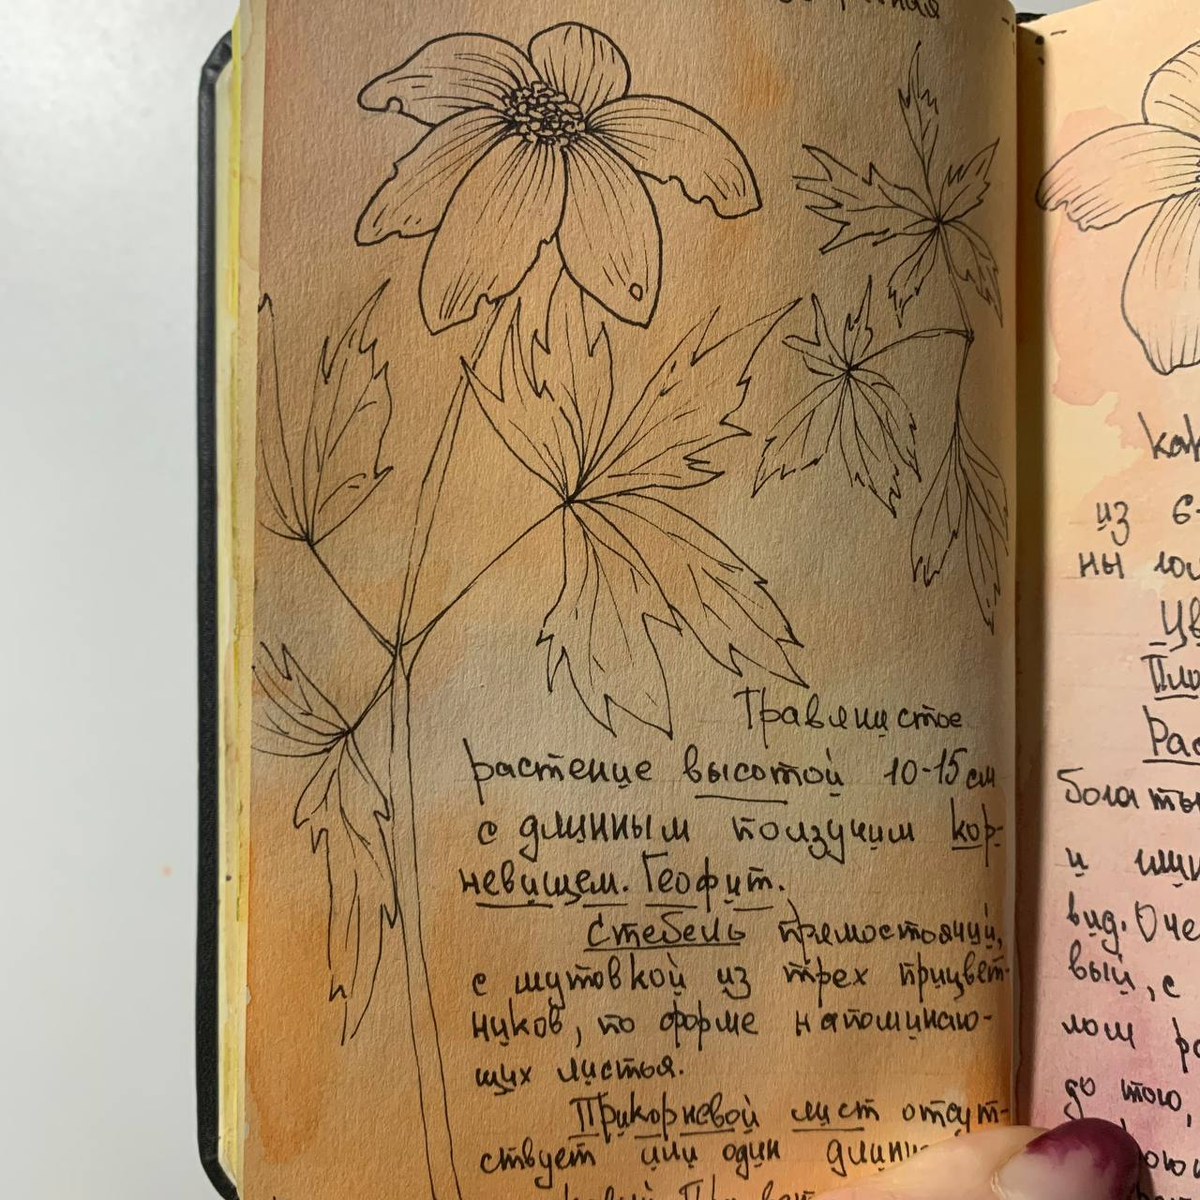 Травянистое
растение высотой 10-15 см
с длинным ползучим кор-
невищем. Геофит.
Стебель прямостоячий,
с мутовкой из трех прицвет-
ников, по форме напоминаю-
щих листья.
Прикорневой лист отсут-
ствует или один
из 6-
ны
Цв
Пло
Рас
богаты
и
вид. Оче
вый, с
лом
до того,